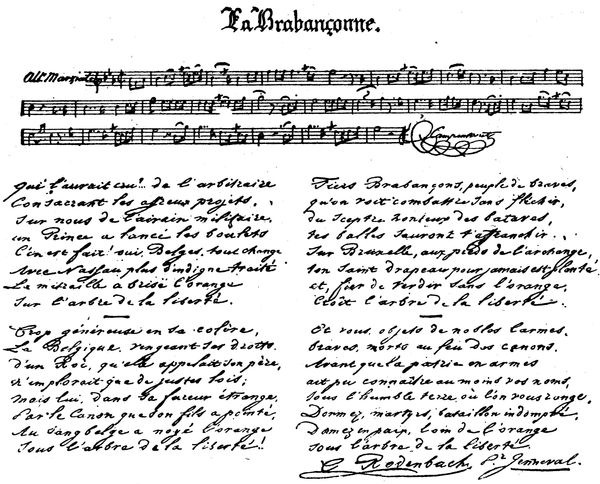 La Brabançonne.
All.º Marziale
Campenhout
Qui l'aurait cru? de l'arbitraire
Consacrant les affreux projets,
Sur nous de l'airain militaire,
un Prince a lancé les boulets
C'en est fait! oui, Belges, tout change
Avec Nassau plus d'indigne traité
La mitraille a brisé l'orange
Sur l'arbre de la liberté.
Trop généreuse en sa colère,
La Belgique, vengeant ses droits
d'un Roi, qu'elle appelait son père,
n'implorait que de justes lois;
mais lui, dans sa fureur étrange,
Par le Canon que son fils a pointé,
Au sang belge a noyé l'orange
Sous l'arbre de la liberté!
Fiers Brabançons, peuple de braves,
qu'on voit combattre sans fléchir,
du Sceptre honteux des bataves,
tes balles sauront t'affranchir.
Sur Bruxelle, aux pieds de l'archange,
ton Saint drapeau pour jamais est planté
et, fier de verdir sans l'orange,
Croît l'arbre de la liberté.
Et vous, objets de nobles larmes,
braves, morts au feu des canons,
Avant que la patrie en armes
ait pu connaître au moins vos noms,
Sous l'humble terre où l'on vous range,
Dormez, martyrs, bataillon indompté,
Dormez en paix, loin de l'orange
Sous l'arbre de la liberté
C. Rodenbach. Pr. Jenneval.